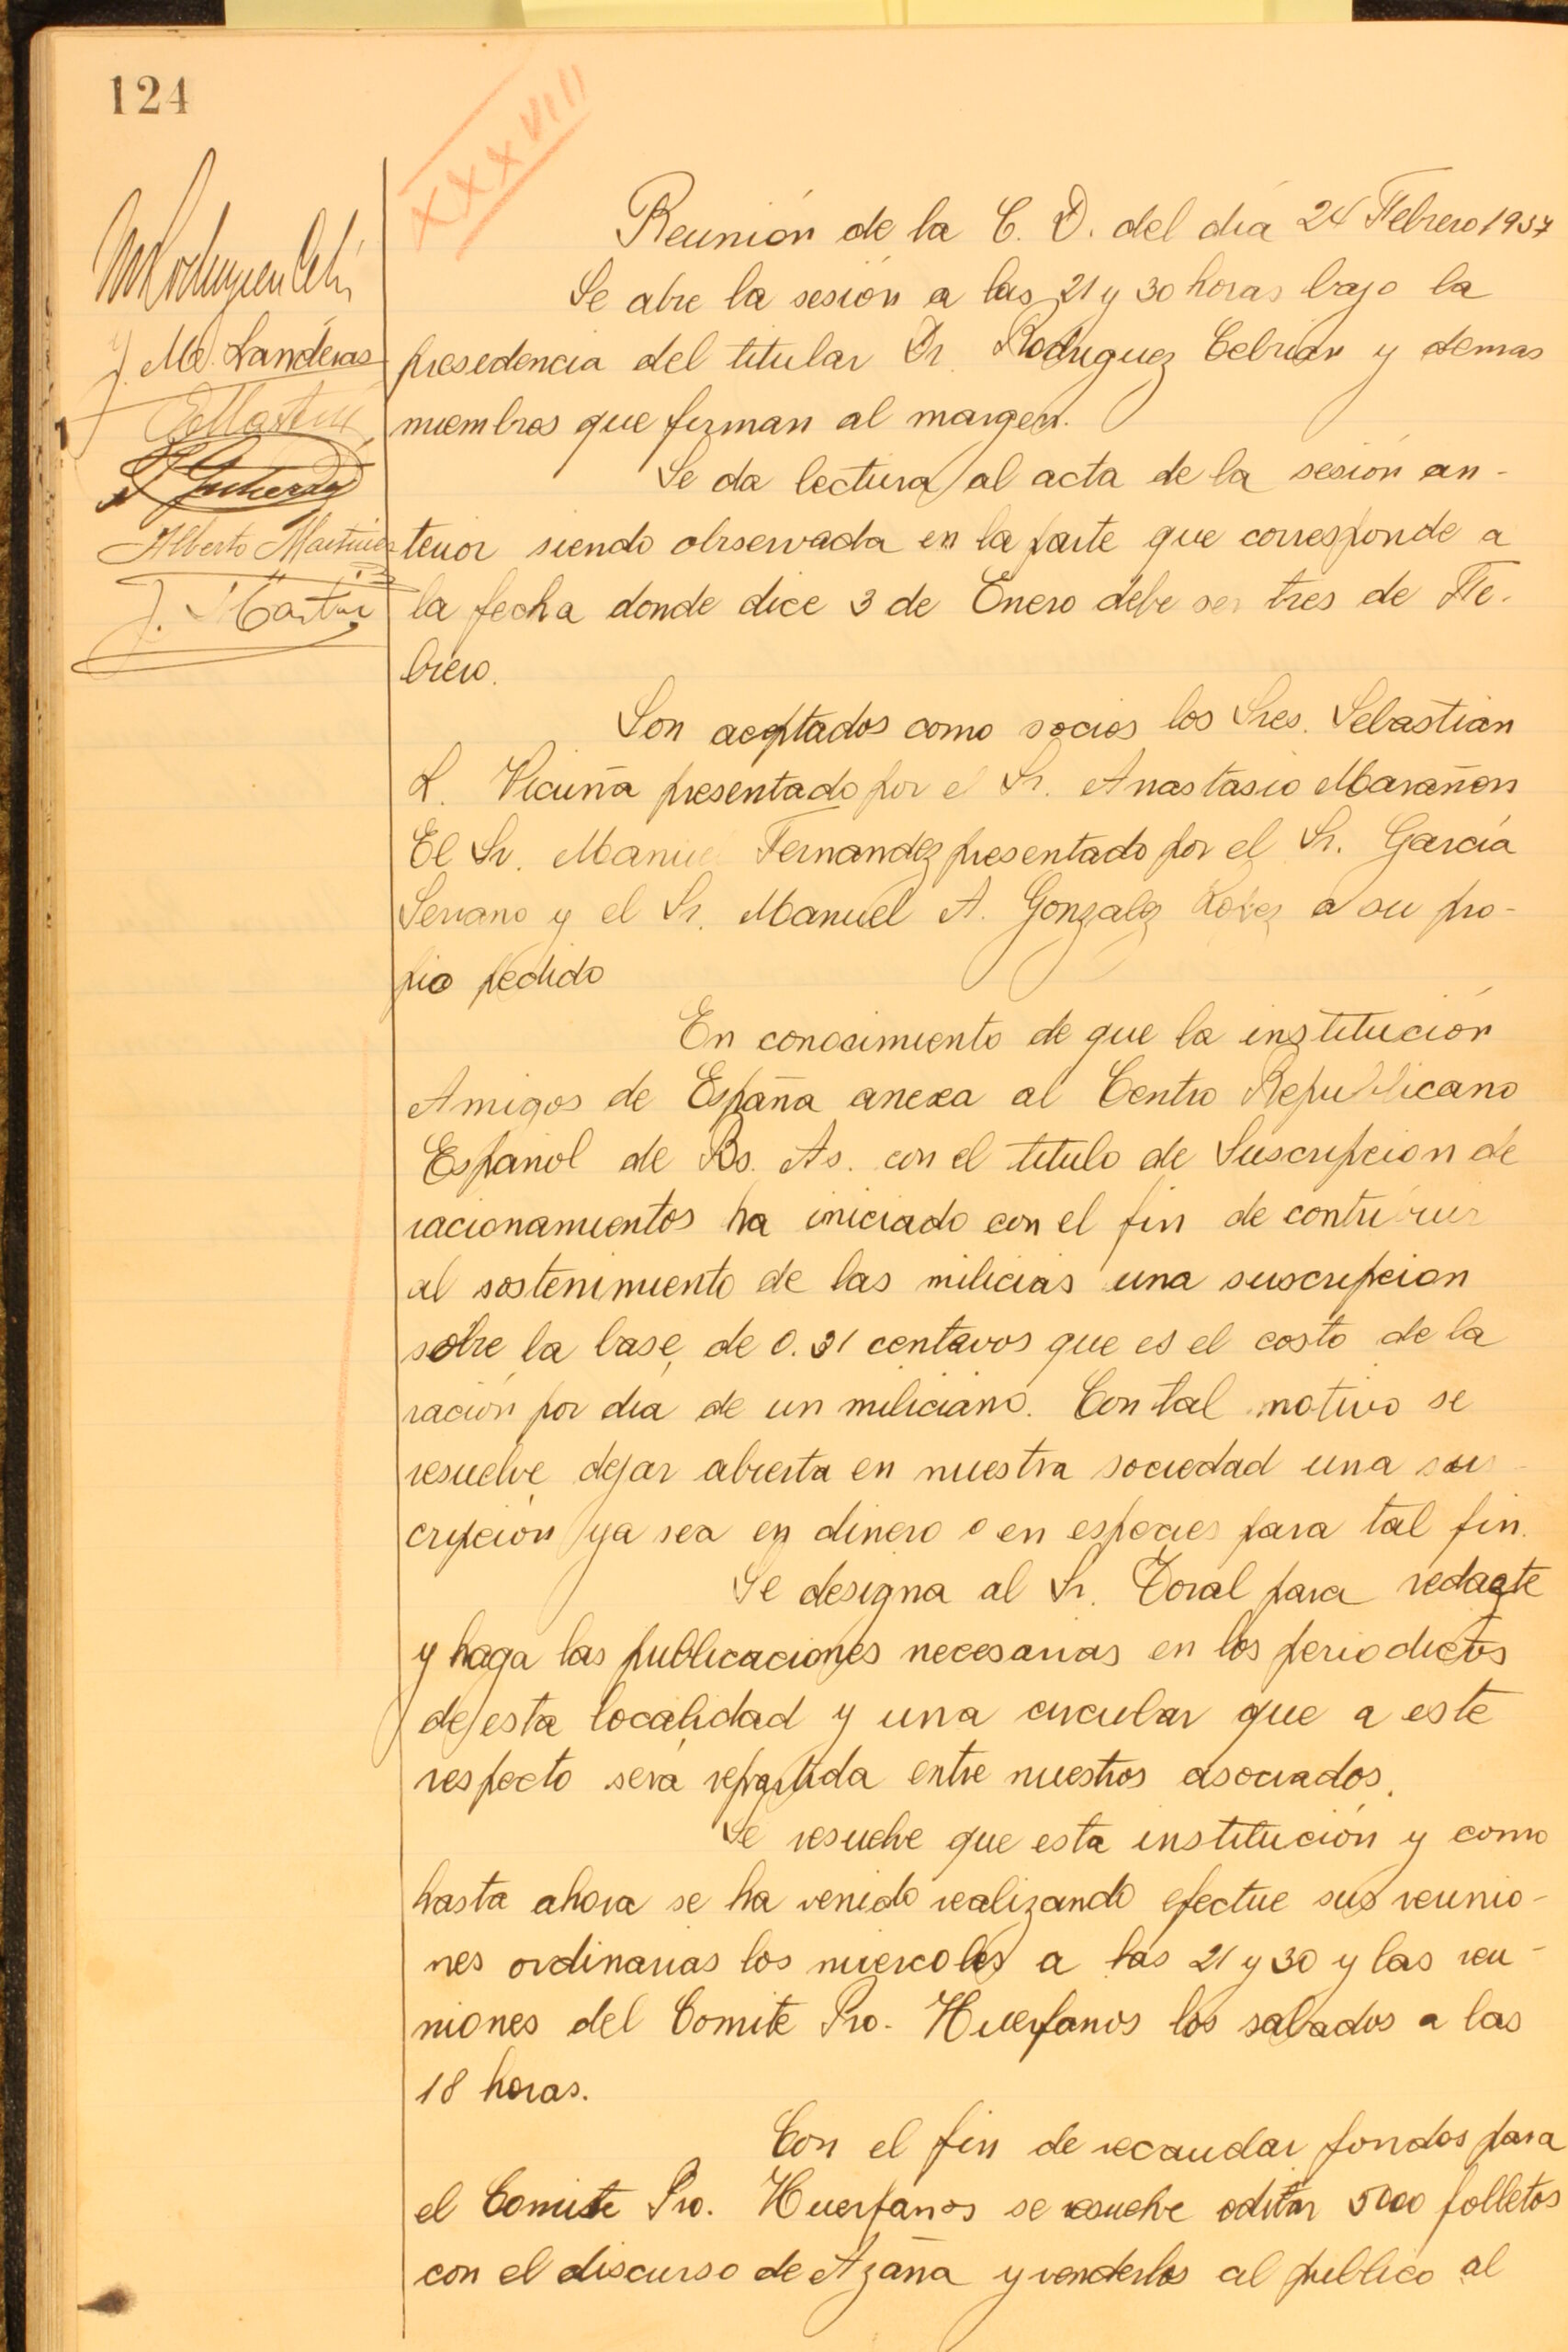 124
XXXVIII
J. M. Landeras
Alberto Martinez
J. Martin
Reunión de la C. D. del día 24 Febrero 1937
Se abre la sesión a las 21 y 30 horas bajo la
presedencia del titular Dr. Rodriguez Cebrian y demas
miembros que firman al margen.
Se da lectura al acta de la sesión an-
terior siendo observada en la parte que corresponde a
la fecha donde dice 3 de Enero debe ser tres de Fe-
brero.
Son aceptados como socios los Sres. Sebastian
L. Vicuña presentado por el Sr. Anastasio Marañon
El Sr. Manuel Fernandez presentado por el Sr. García
Serrano y el Sr. Manuel A. Gonzalez Lopez a su pro-
pio pedido
En conocimiento de que la institución
Amigos de España anexa al Centro Republicano
Español de Bs. As. con el titulo de Suscripcion de
racionamientos ha iniciado con el fin de contribuir
al sostenimiento de las milicias una suscripcion
sobre la base de 0.31 centavos que es el costo de la
ración por día de un miliciano. Con tal motivo se
resuelve dejar abierta en nuestra sociedad una sus-
cripción ya sea en dinero o en especies para tal fin.
Se designa al Sr. Toral para redacte
y haga las publicaciones necesarias en los periodicos
de esta localidad y una circular que a este
respecto será repartida entre nuestros asociados.
Se resuelve que esta institución y como
hasta ahora se ha venido realizando efectue sus reunio-
nes ordinarias los miercoles a las 21 y 30 y las reu-
niones del Comite Pro. Huerfanos los sabados a las
18 horas.
Con el fin de recaudar fondos para
el Comite Pro. Huerfanos se resuelve editar 5000 folletos
con el discurso de Azaña y venderlos al publico al